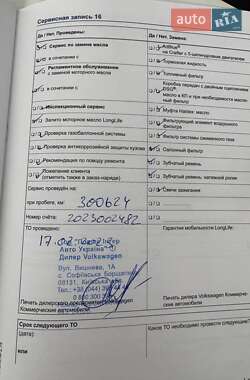 AUTO.RIA.com
Сервисная запись 16
Да / Нет. Проведены:
Сервис по замене масла
в сочетании с
Регламентное обслуживание
с заменой моторного масла
в сочетании с
Инспекционный сервис
Залито моторное масло LongLife
Проверка газобаллонной системы
Проверка антикоррозийной защиты кузова
Рекомендация по поводу ремонта
Пожелания клиента
(отметить также в заказ-наряде)
Сервис проведён на:
при пробеге, км: 300624
Номер счёта: 2023002482
ТО проведено:
17.
Авто Україна
Дилер Volkswagen
Вул. Вишнева, 1А
с. Софіївська Борщагівка
08131, Київська
Тел.: +38 (044)
0 800 300
Печать дилерского предприятия Volkswagen
Коммерческие автомобили
Срок следующего ТО
(дата):
или
Да / Нет. Замена:
AdBlue®
на Crafter с 5-цилиндровым двигателем
Тормозная жидкость
Топливный фильтр
Коробка передач с двойным сцеплением
DSG®
масло в КП и при необходимости масля-
ный фильтр
Муфта Haldex: масло
Фильтрующий элемент воздушного
фильтра
Фильтр системы сжиженного газа
Салонный фильтр
Зубчатый ремень
Зубчатый ремень, натяжной ролик
Свечи зажигания
Гарантия мобильности LongLife:
Печать дилера Volkswagen Коммерческие
автомобили
Какое ТО необходимо провести следующим?